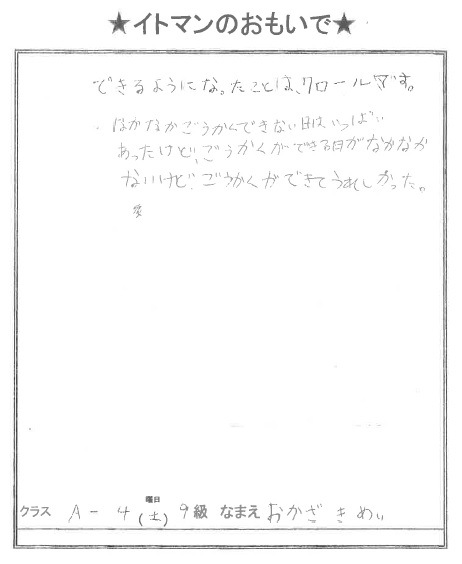 ★イトマンのおもいで★
できるようになったことは、クロールです。
なかなかごうかくできない日は、いっぱい
あったけど、ごうかくができる日がなかなか
ないけど、ごうかくができてうれしかった。
クラス A-4 曜日(土) 9級 なまえ おかざき めい